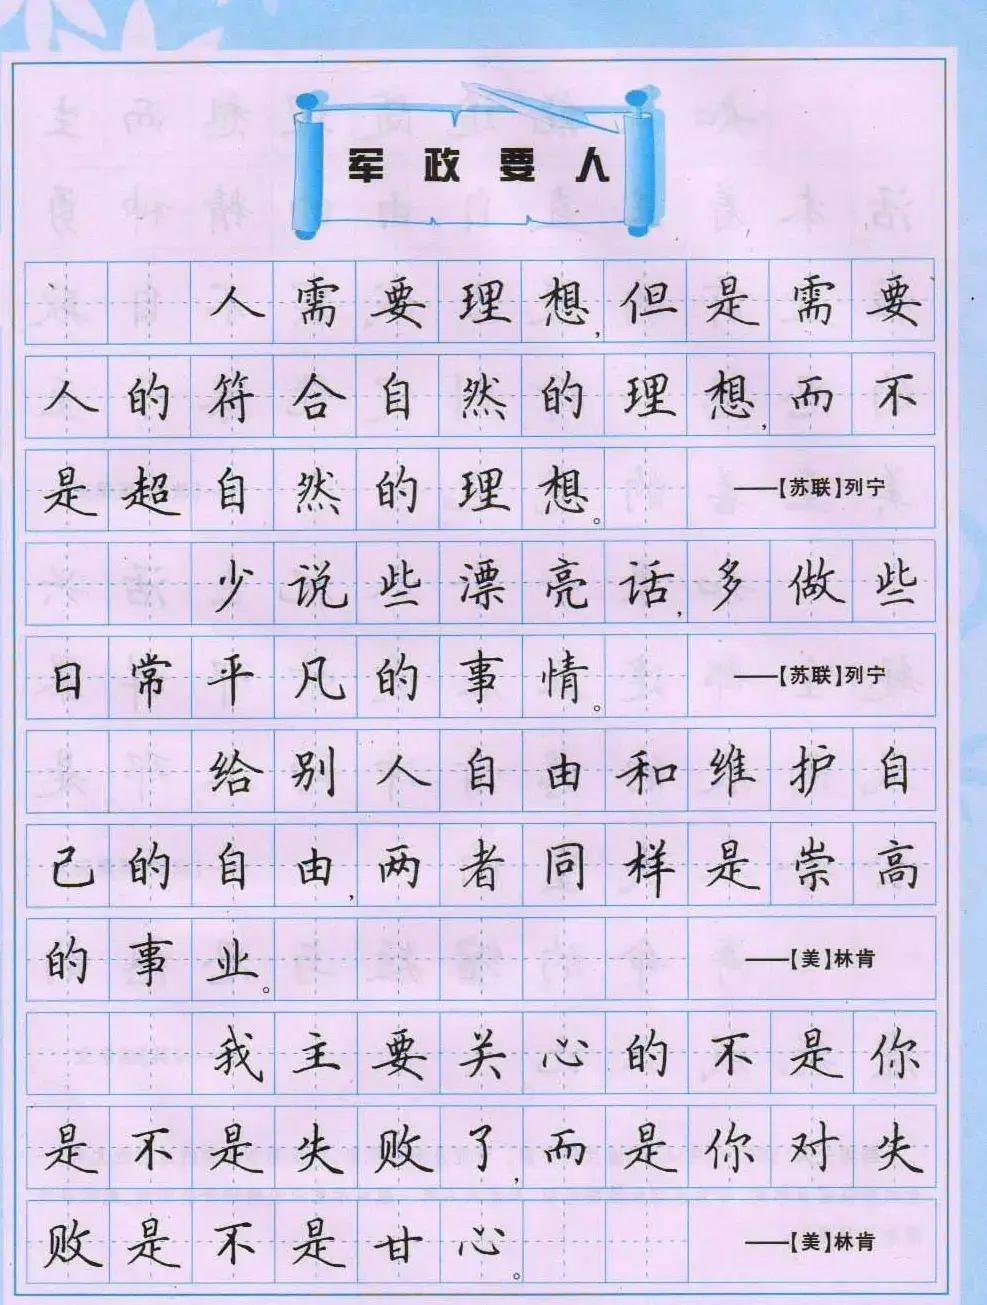 军政要人
人需要理想,但是需要
人的符合自然的理想,而不
是超自然的理想。 ——【苏联】列宁
少说些漂亮话,多做些
日常平凡的事情。 ——【苏联】列宁
给别人自由和维护自
己的自由,两者同样是崇高
的事业。 ——【美】林肯
我主要关心的不是你
是不是失败了,而是你对失
败是不是甘心。 ——【美】林肯